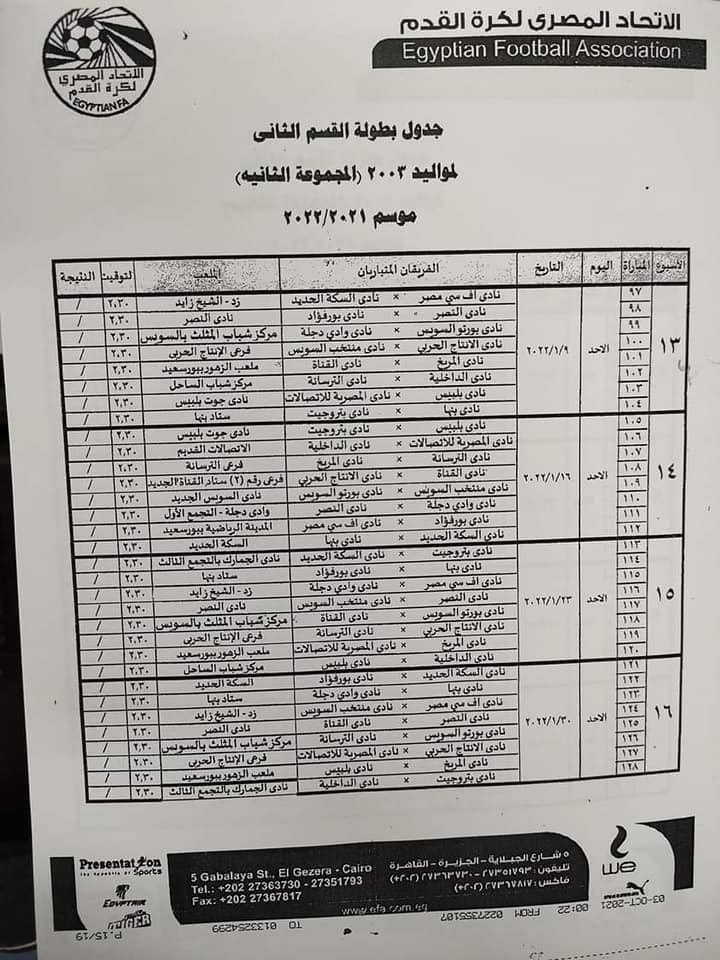 الاتحاد المصرى لكرة القدم
Egyptian Football Association
الاتحاد المصرى
لكرة القدم
EGYPTIAN FA
جدول بطولة القسم الثانى
لمواليد ٢٠٠٣ (المجموعة الثانيه)
موسم ٢٠٢٢/٢٠٢١
الاسبوع المباراة اليوم التاريخ الفريقان المتباريان الملعب التوقيت النتيجة
١٣ الاحد ٢٠٢٢/١/٩
٩٧ نادى اف سي مصر × نادى السكة الحديد زد - الشيخ زايد ٢,٣٠ /
٩٨ نادى النصر × نادى بورفؤاد نادى النصر ٢,٣٠ /
٩٩ نادى بورتو السويس × نادى وادي دجلة مركز شباب المثلث بالسويس ٢,٣٠ /
١٠٠ نادى الانتاج الحربي × نادى منتخب السويس فرعى الإنتاج الحربى ٢,٣٠ /
١٠١ نادى المريخ × نادى القناة ملعب الزهور ببورسعيد ٢,٣٠ /
١٠٢ نادى الداخلية × نادى الترسانة مركز شباب الساحل ٢,٣٠ /
١٠٣ نادى بلبيس × نادى المصرية للاتصالات نادى جوت بلبيس ٢,٣٠ /
١٠٤ نادى بنها × نادى بتروجيت ستاد بنها ٢,٣٠ /
١٤ الاحد ٢٠٢٢/١/١٦
١٠٥ نادى بلبيس × نادى بتروجيت نادى جوت بلبيس ٢,٣٠ /
١٠٦ نادى المصرية للاتصالات × نادى الداخلية الاتصالات القديم ٢,٣٠ /
١٠٧ نادى الترسانة × نادى المريخ فرعى الترسانة ٢,٣٠ /
١٠٨ نادى القناة × نادى الانتاج الحربي فرعى رقم (٢) ستاد القناة الجديد ٢,٣٠ /
١٠٩ نادى منتخب السويس × نادى بورتو السويس نادى السويس الجديد ٢,٣٠ /
١١٠ نادى وادي دجلة × نادى النصر وادى دجلة - التجمع الأول ٢,٣٠ /
١١١ نادى بورفؤاد × نادى اف سي مصر المدينة الرياضية ببورسعيد ٢,٣٠ /
١١٢ نادى السكة الحديد × نادى بنها السكة الحديد ٢,٣٠ /
١٥ الاحد ٢٠٢٢/١/٢٣
١١٣ نادى بتروجيت × نادى السكة الحديد نادى الجمارك بالتجمع الثالث ٢,٣٠ /
١١٤ نادى بنها × نادى بورفؤاد ستاد بنها ٢,٣٠ /
١١٥ نادى اف سي مصر × نادى وادي دجلة زد - الشيخ زايد ٢,٣٠ /
١١٦ نادى النصر × نادى منتخب السويس نادى النصر ٢,٣٠ /
١١٧ نادى بورتو السويس × نادى القناة مركز شباب المثلث بالسويس ٢,٣٠ /
١١٨ نادى الانتاج الحربي × نادى الترسانة فرعى الإنتاج الحربى ٢,٣٠ /
١١٩ نادى المريخ × نادى المصرية للاتصالات ملعب الزهور ببورسعيد ٢,٣٠ /
١٢٠ نادى الداخلية × نادى بلبيس مركز شباب الساحل ٢,٣٠ /
١٦ الاحد ٢٠٢٢/١/٣٠
١٢١ نادى السكة الحديد × نادى بورفؤاد السكة الحديد ٢,٣٠ /
١٢٢ نادى بنها × نادى وادي دجلة ستاد بنها ٢,٣٠ /
١٢٣ نادى اف سي مصر × نادى منتخب السويس زد - الشيخ زايد ٢,٣٠ /
١٢٤ نادى النصر × نادى القناة نادى النصر ٢,٣٠ /
١٢٥ نادى بورتو السويس × نادى الترسانة مركز شباب المثلث بالسويس ٢,٣٠ /
١٢٦ نادى الانتاج الحربي × نادى المصرية للاتصالات فرعى الإنتاج الحربى ٢,٣٠ /
١٢٧ نادى المريخ × نادى بلبيس ملعب الزهور ببورسعيد ٢,٣٠ /
١٢٨ نادى بتروجيت × نادى الداخلية نادى الجمارك بالتجمع الثالث ٢,٣٠ /
Presentation
Sports
EGYPTAIR
5 Gabalaya St., El Gezera - Cairo
Tel.: +202 27363730 - 27351793
Fax: +202 27367817
٥ شارع الجبلاية - الجزيرة - القاهرة
تليفون: ٢٧٣٥١٧٩٣ - ٢٧٣٦٣٧٣٠ (٢٠٢+)
فاكس: ٢٧٣٦٧٨١٧ (٢٠٢+)
www.efa.com.eg
we
PUMA
03-OCT-2021 00:22 FROM 0227355107 TO 0133254299 P.15/19